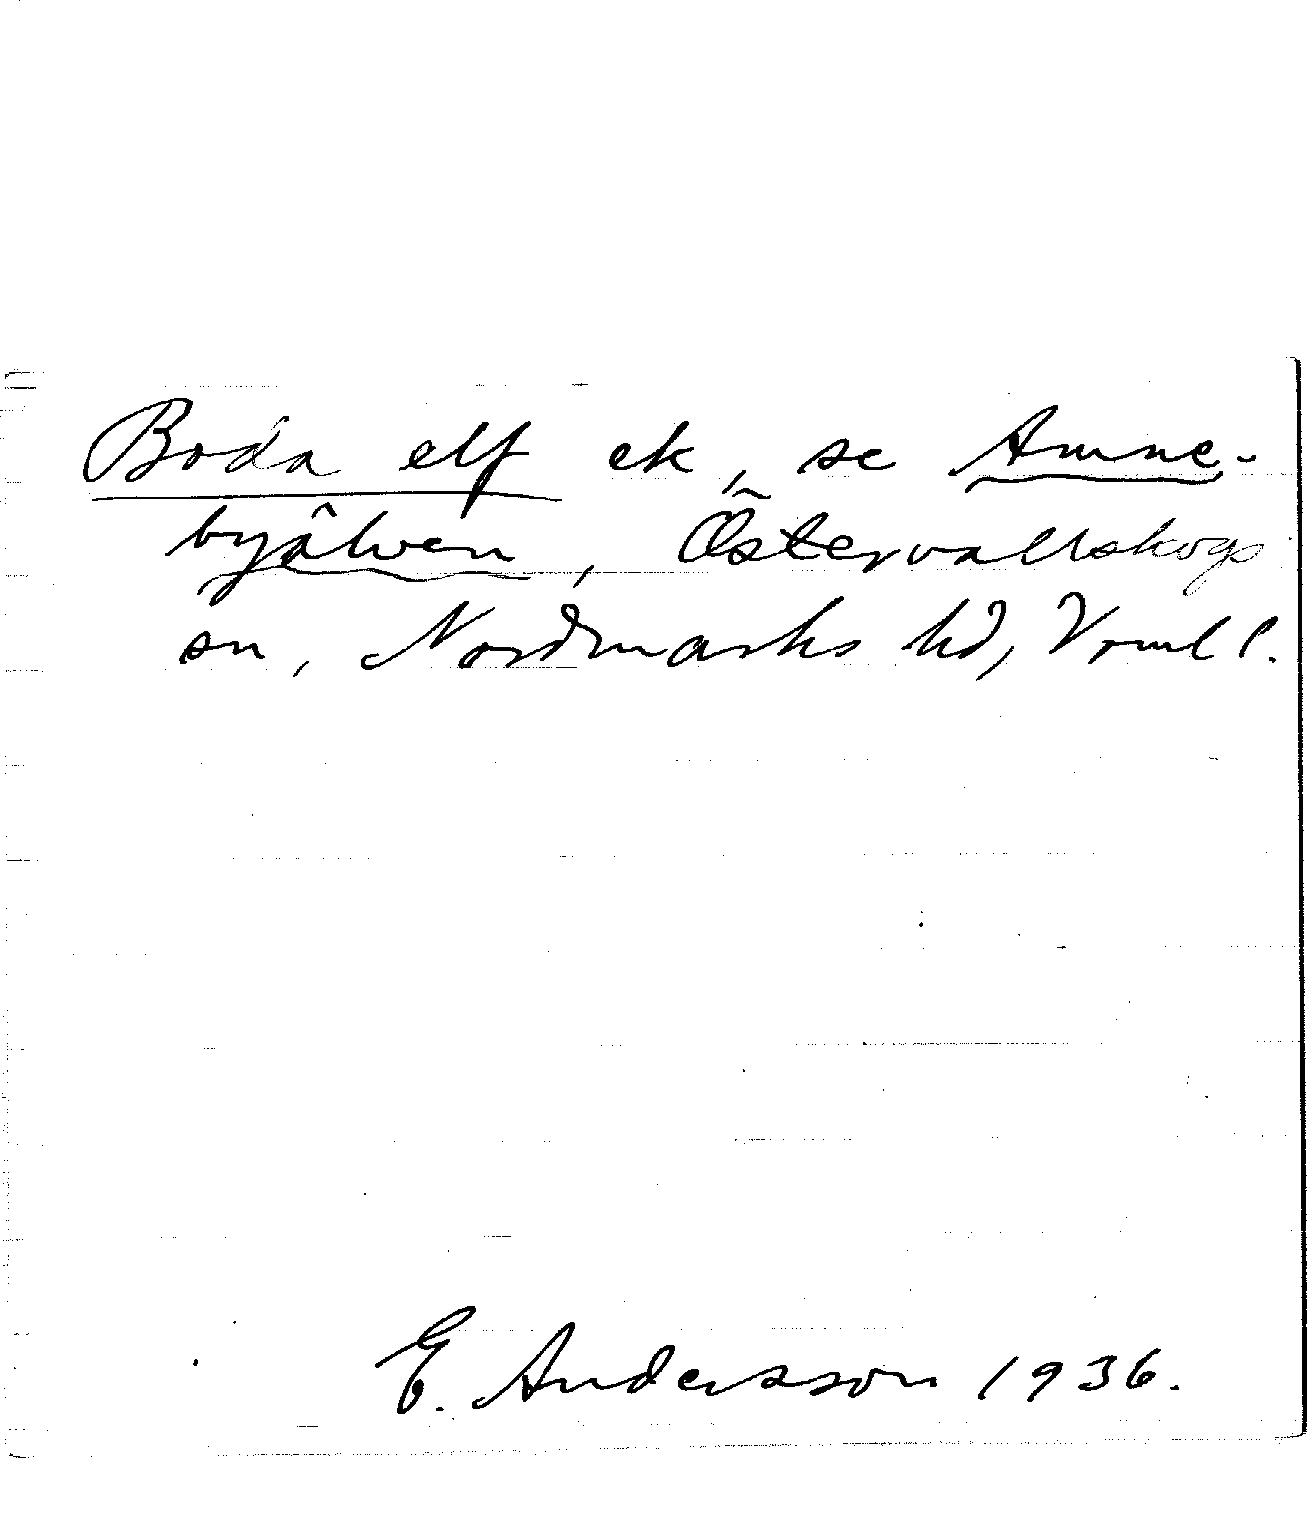 Boda elf ek, se Amne-
byälven, Östervallskogs
sn, Nordmarks hd, Vrml l.
E. Andersson 1936.